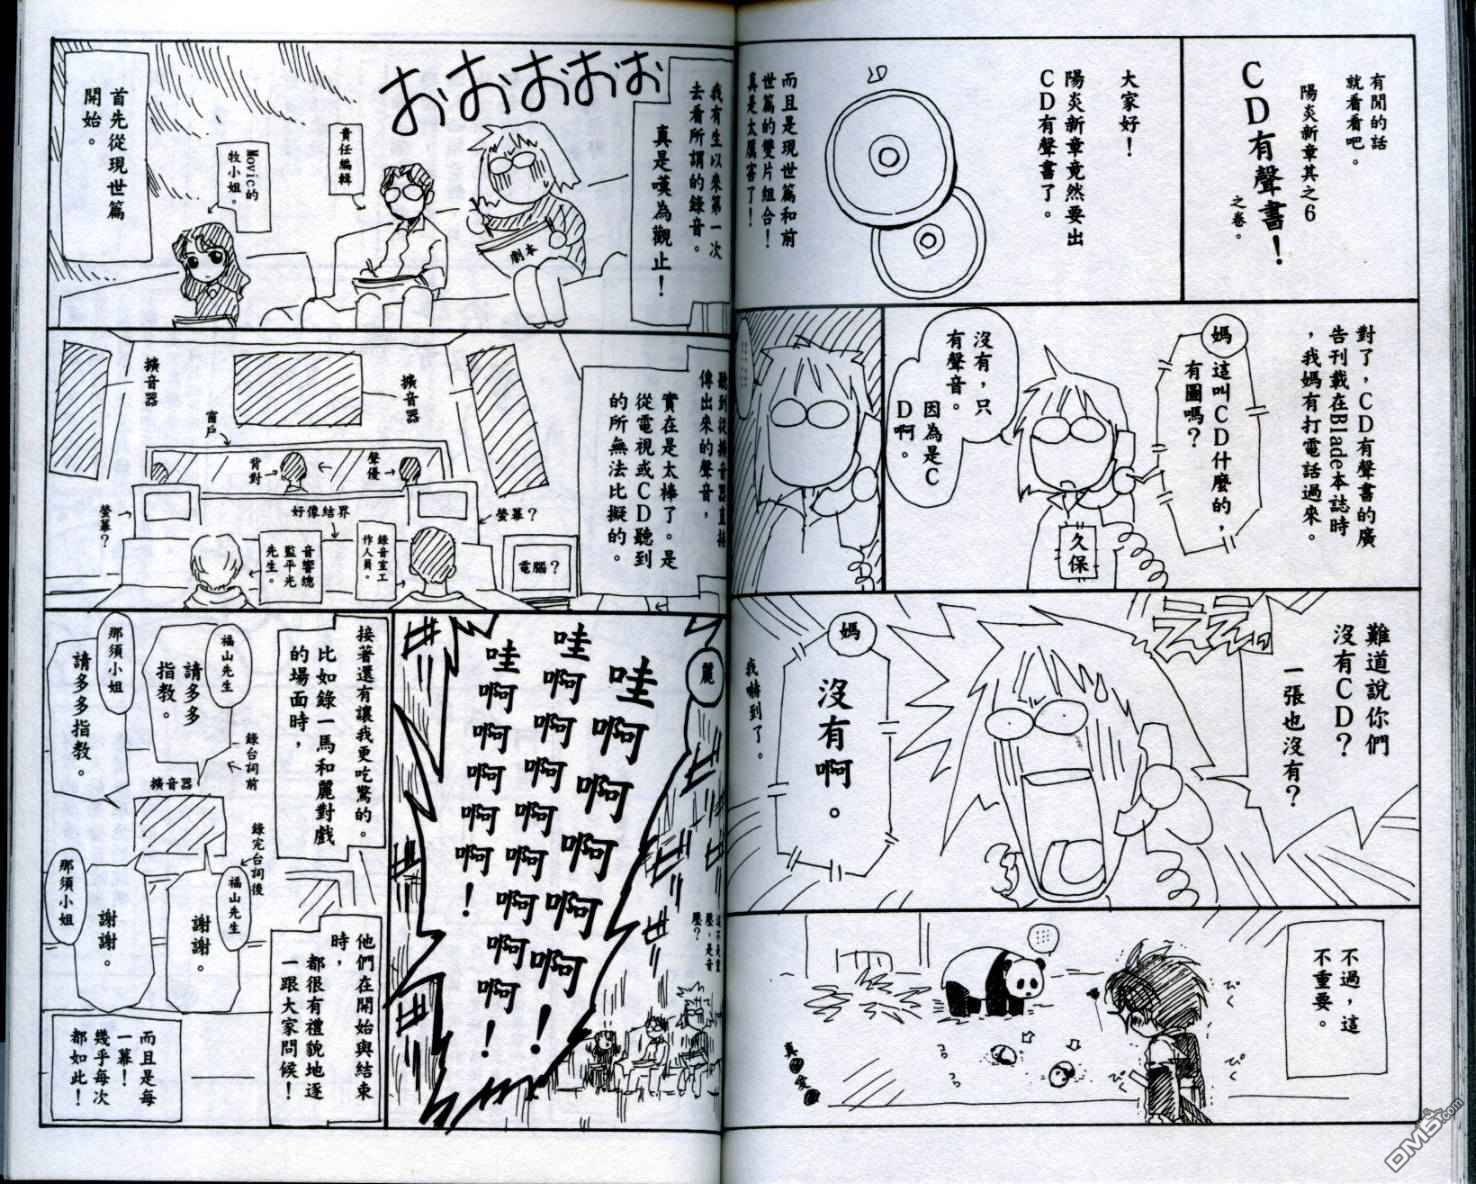 有閒的話
就看看吧。
陽炎新章其之6
CD有聲書!
之卷。
大家好!
陽炎新章竟然要出
CD有聲書了。
CD
而且是現世篇和前
世篇的雙片組合!
真是太厲害了!
對了,CD有聲書的廣
告刊載在Blade本誌時
,我媽有打電話過來。
媽
這叫CD什麼的,
有圖嗎?
久保
沒有,只
有聲音。
因為是C
D啊。
難道說你們
沒有CD?
一張也沒有?
ええっ
媽
沒有啊。
我嚇到了。
不過,這
不重要。
ぴく
ぴく
ぴく
我有生以來第一次
去看所謂的錄音。
真是嘆為觀止!
おおおおお
劇本
責任編輯
Movic的
牧小姐。
首先從現世篇
開始。
聽到從擴音器直接
傳出來的聲音,
實在是太棒了。是
從電視或CD聽到
的所無法比擬的。
擴音器
擴音器
窗戶
背對
聲優
螢幕?
螢幕?
好像結界
錄音室工
作人員。
音響總
監平光
先生。
電腦?
麗
哇啊啊啊啊啊!
哇啊啊啊啊啊啊啊!
哇啊啊啊啊啊!
接著還有讓我更吃驚的。
比如錄一馬和麗對戲
的場面時,
錄台詞前
福山先生
請多多
指教。
那須小姐
請多多指教。
擴音器
錄完台詞後
福山先生
謝謝。
那須小姐
謝謝。
他們在開始與結束
時,
都很有禮貌地逐
一跟大家問候!
而且是每
一幕!
幾乎每次
都如此!
DM5.com